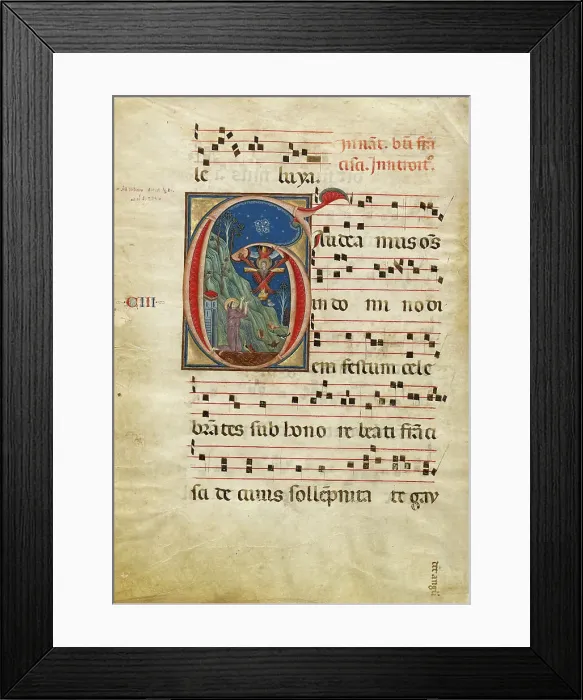 le luya.
In nat̄. bt̄i frā
cisci. Introit᷒.
CIII
audea mus oс̄
in do mi no di
em festum cele
brātes sub hono re beati frāci
sci de cuius sollēpnita te gau